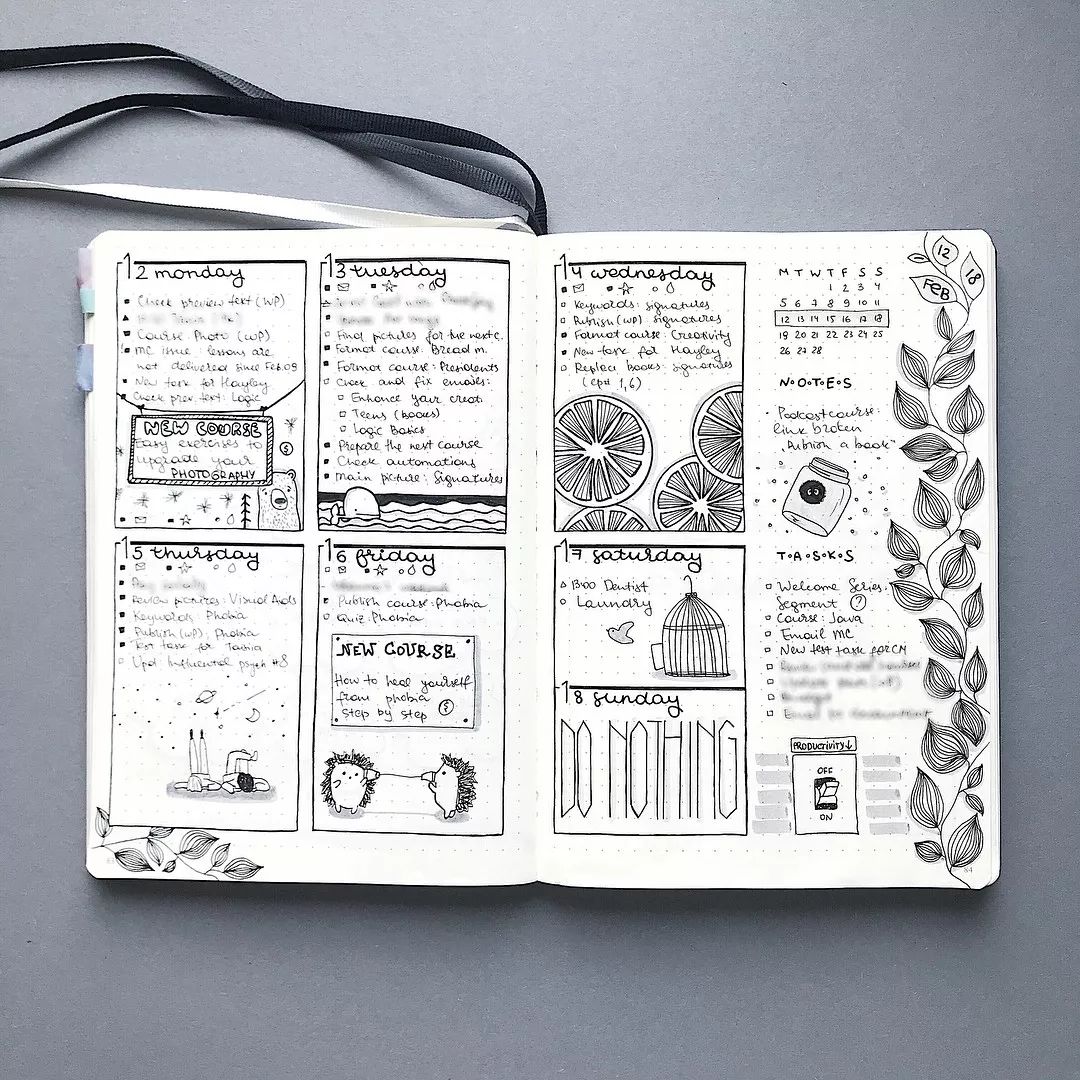 12 monday
Check preview text (WP)
Course: Photo (WP)
MC issue: lessons are
not delivered since Feb.09
New task for Hayley
Check prev. text: Logic
NEW COURSE
Easy exercises to
upgrade your
PHOTOGRAPHY
13 tuesday
Final pictures for the next c.
Format course: Bread m.
Format course: Presidents
Check and fix emails:
Enhance your creat.
Teens (books)
Logic Basics
Prepare the next course
Check automations
Main picture: signatures
14 wednesday
Keywords: signatures
Publish (WP) signatures
Format course: Creativity
New task for Hayley
Replect books: signatures
(ep# 1,6)
15 thursday
Review pictures: Visual Aids
Keywords: Phobia
Publish (WP): Phobia
Test task for
Upd: Influential psych #8
16 friday
Publish course: Phobia
Quiz: Phobia
NEW COURSE
How to heal yourself
from phobia
step by step
17 saturday
1300 Dentist
Laundry
18 sunday
DO NOTHING
12
18
FEB
M T W T F S S
1 2 3 4
5 6 7 8 9 10 11
12 13 14 15 16 17 18
19 20 21 22 23 24 25
26 27 28
N.O.T.E.S
Podcast course:
link broken
"Publish a book"
T.A.S.K.S
Welcome Series:
Segment ?
Course: Java
Email MC
New test task for CM
PRODUCTIVITY↓
OFF
ON
84